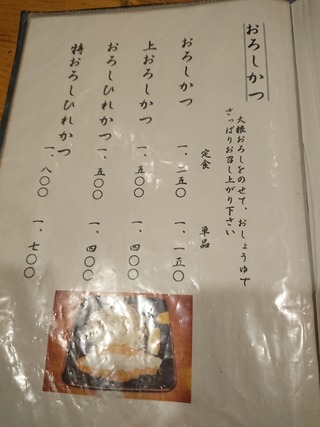 おろしかつ
大根おろしをのせて、おしょうゆで
さっぱりお召し上がり下さい
定食 単品
おろしかつ 一、二五〇 一、一五〇
上おろしかつ 一、五〇〇 一、四〇〇
おろしひれかつ 一、五〇〇 一、四〇〇
特おろしひれかつ 一、八〇〇 一、七〇〇